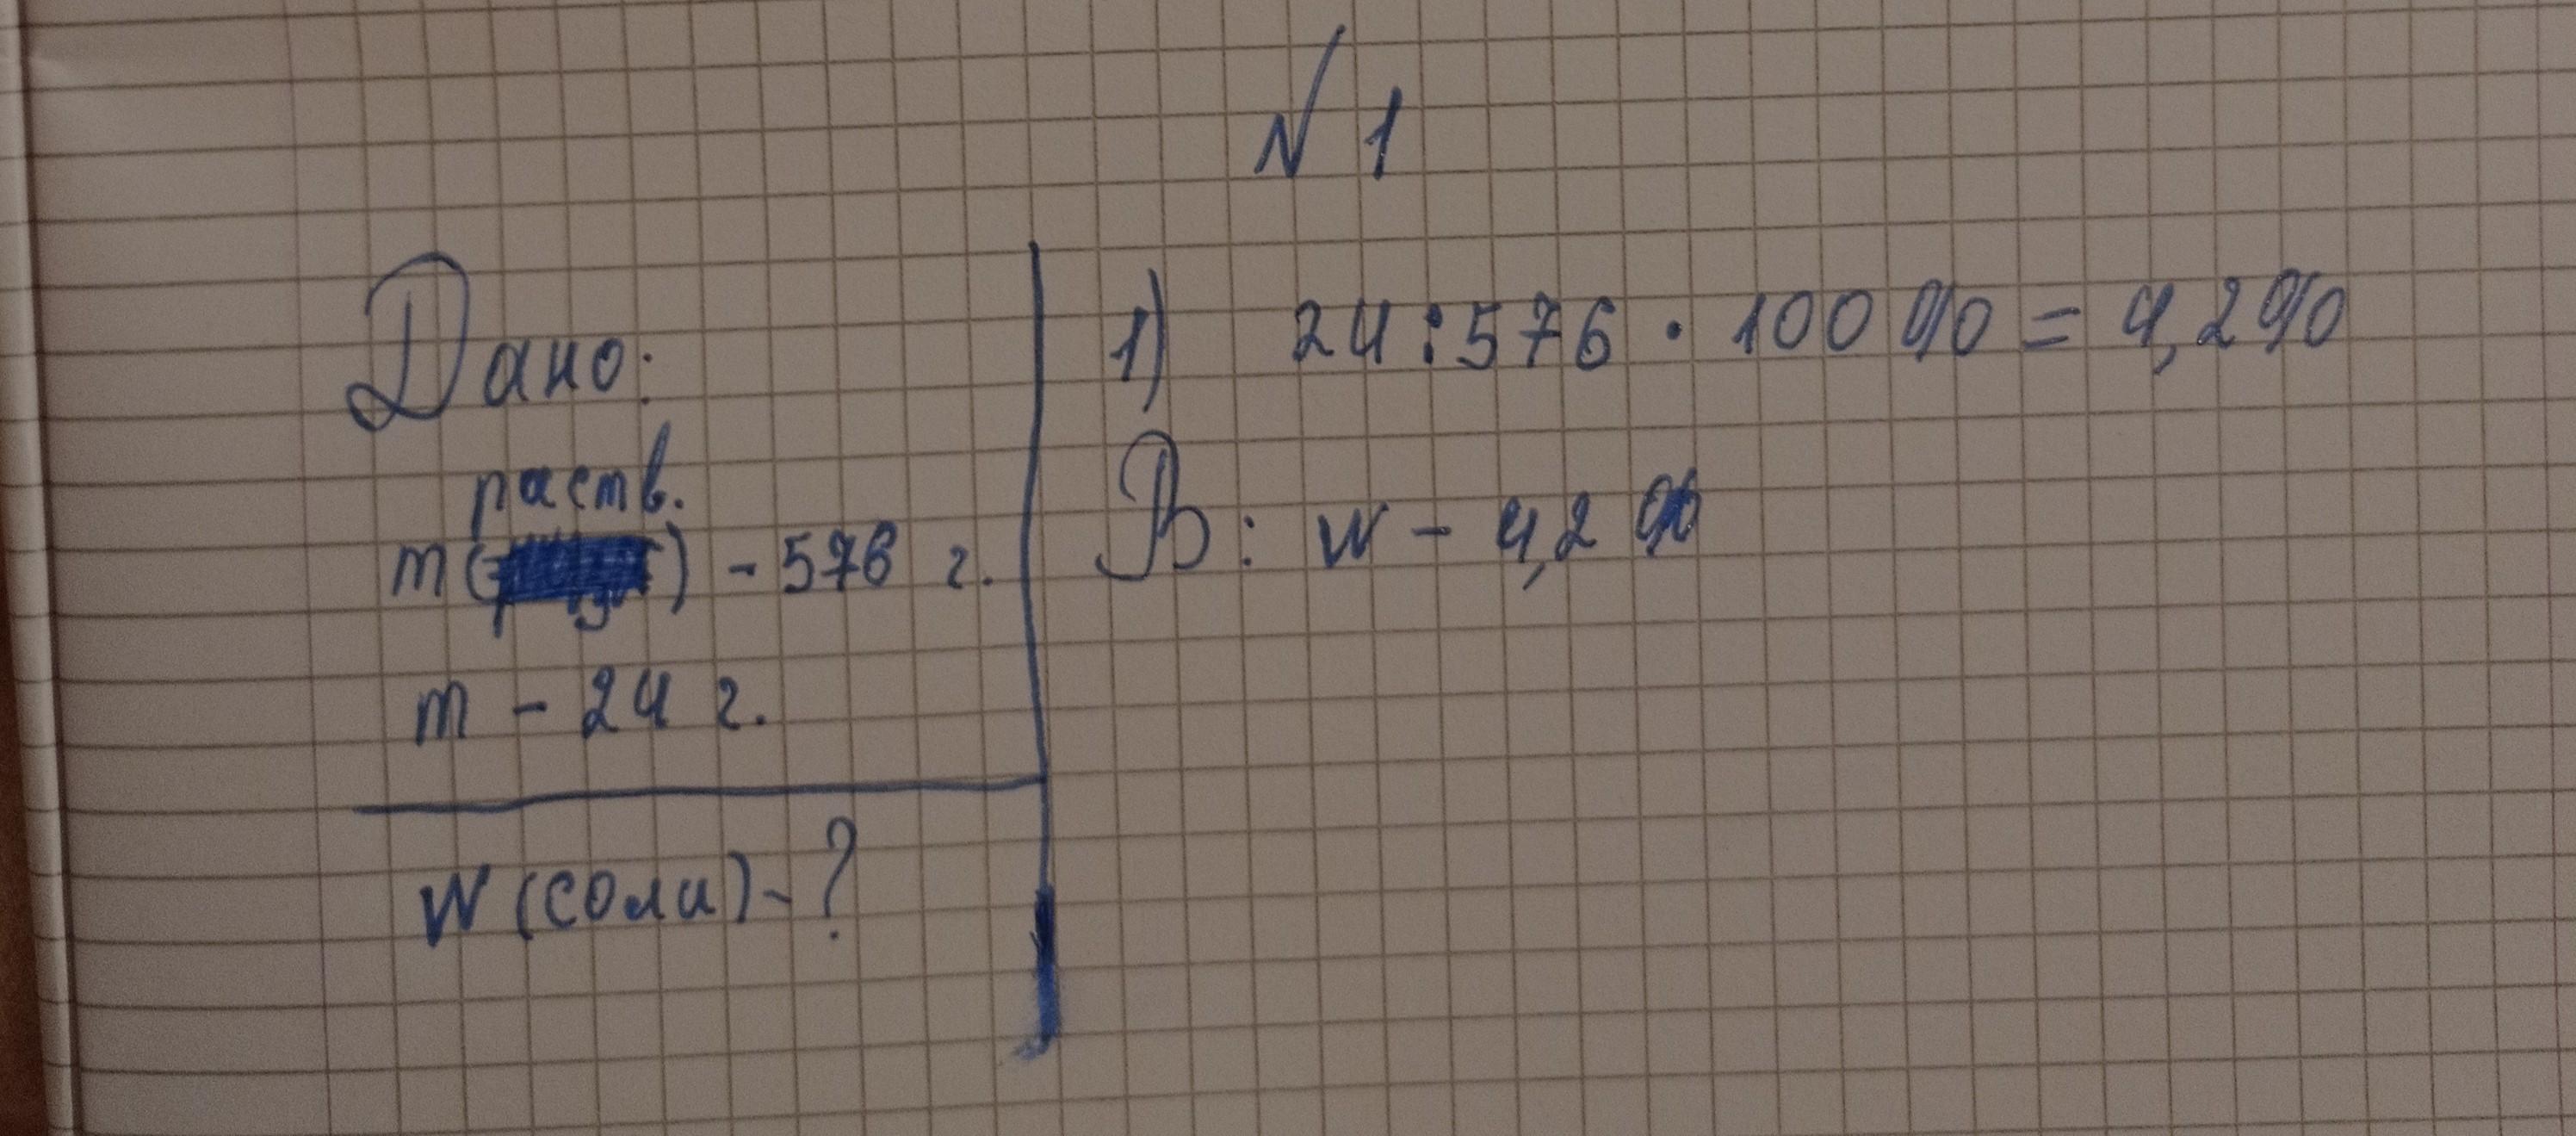 № 1
Дано:
раств.
m( ) - 576 г.
m - 24 г.
W (соли) - ?
1) 24 : 576 · 100 % = 4,2 %
В: W - 4,2 %